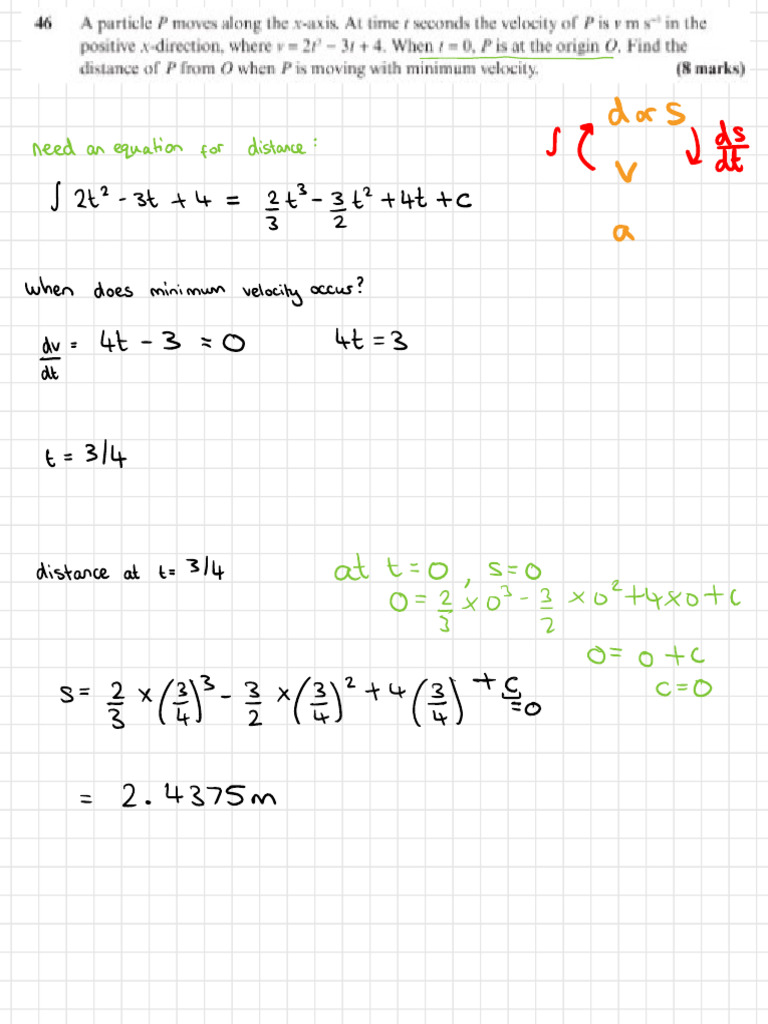 46 A particle P moves along the x-axis. At time t seconds the velocity of P is v m s⁻¹ in the
positive x-direction, where v = 2t² − 3t + 4. When t = 0, P is at the origin O. Find the
distance of P from O when P is moving with minimum velocity. (8 marks)
d or s
∫ ds/dt
v
a
need an equation for distance:
∫ 2t² - 3t + 4 = 2/3 t³ - 3/2 t² + 4t + c
when does minimum velocity occur?
dv/dt = 4t - 3 = 0 4t = 3
t = 3/4
distance at t = 3/4
at t = 0, s = 0
0 = 2/3 × 0³ - 3/2 × 0² + 4 × 0 + c
0 = 0 + c
c = 0
s = 2/3 × (3/4)³ - 3/2 × (3/4)² + 4 (3/4) + c = 0
= 2.4375m